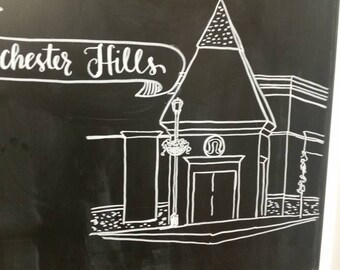 chester Hills